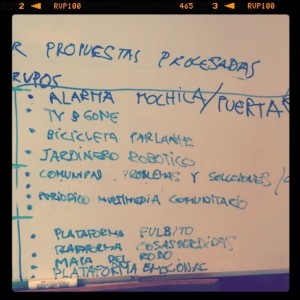 RVP100 465 RVP100
R PROPUESTAS PROCESADAS
RUPOS
ALARMA MOCHILA/PUERTA
TV & GAME
BICICLETA PARLANTE
JARDINERO ROBOTICO
COMUNIDAD PROBLEMAS Y SOLUCIONES /
PERIODICO MULTIMEDIA COMUNITARIO
PLATAFORMA FULBITO
PLATAFORMA COSAS PERDIDAS
MAPA DEL ROBO
PLATAFORMA EMOCIONAL